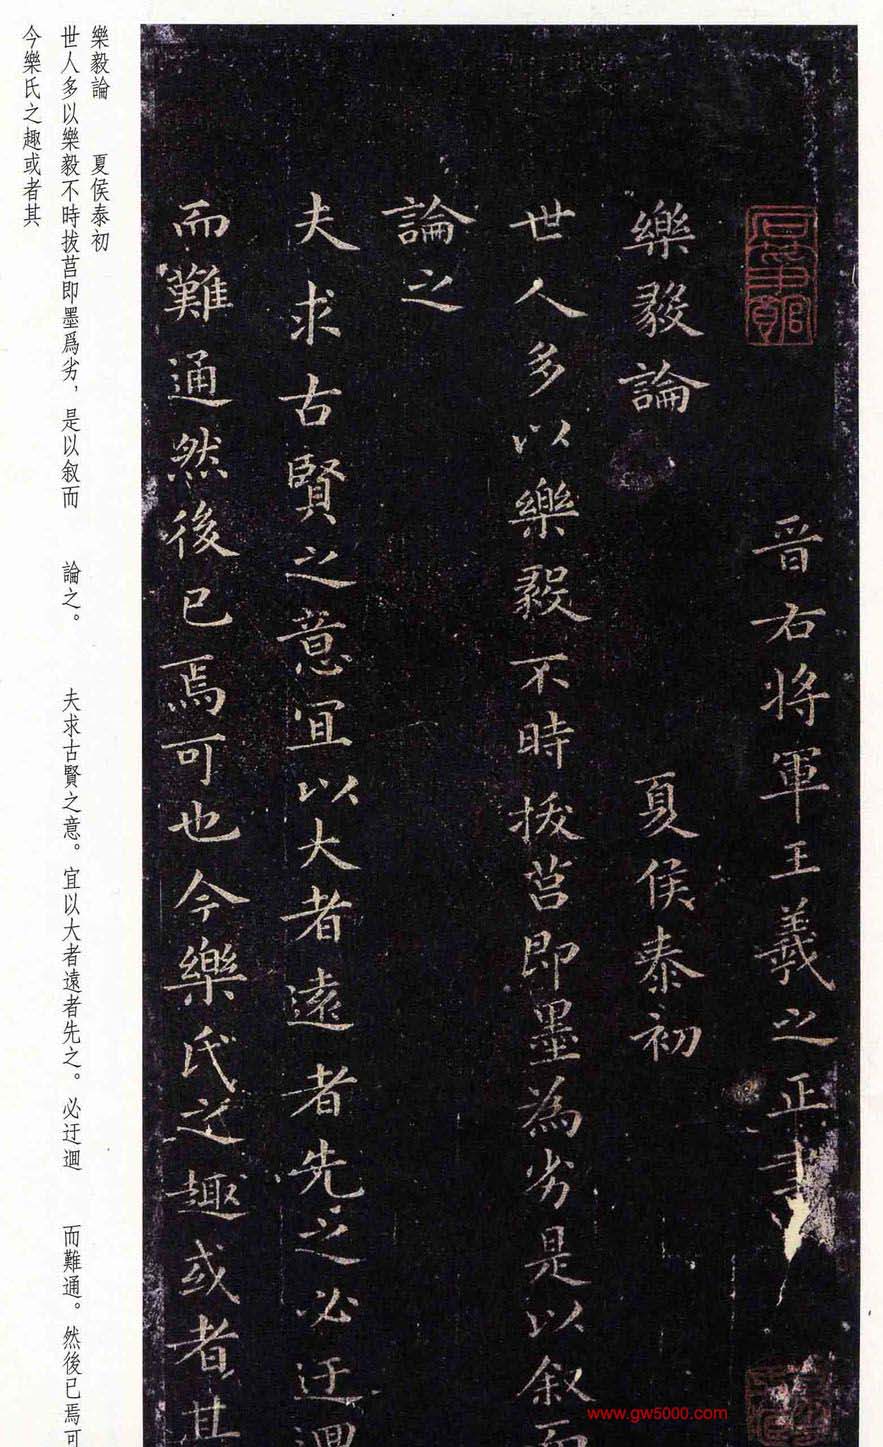 晉右将軍王羲之正書
樂毅論 夏侯泰初
世人多以樂毅不時拔莒即墨為劣是以叙而
論之
夫求古賢之意宜以大者遠者先之必迂迴
而難通然後已焉可也今樂氏之趣或者其
樂毅論 夏侯泰初
世人多以樂毅不時拔莒即墨爲劣，是以叙而 論之。 夫求古賢之意。宜以大者遠者先之。必迂迴 而難通。然後已焉可
今樂氏之趣或者其
www.gw5000.com